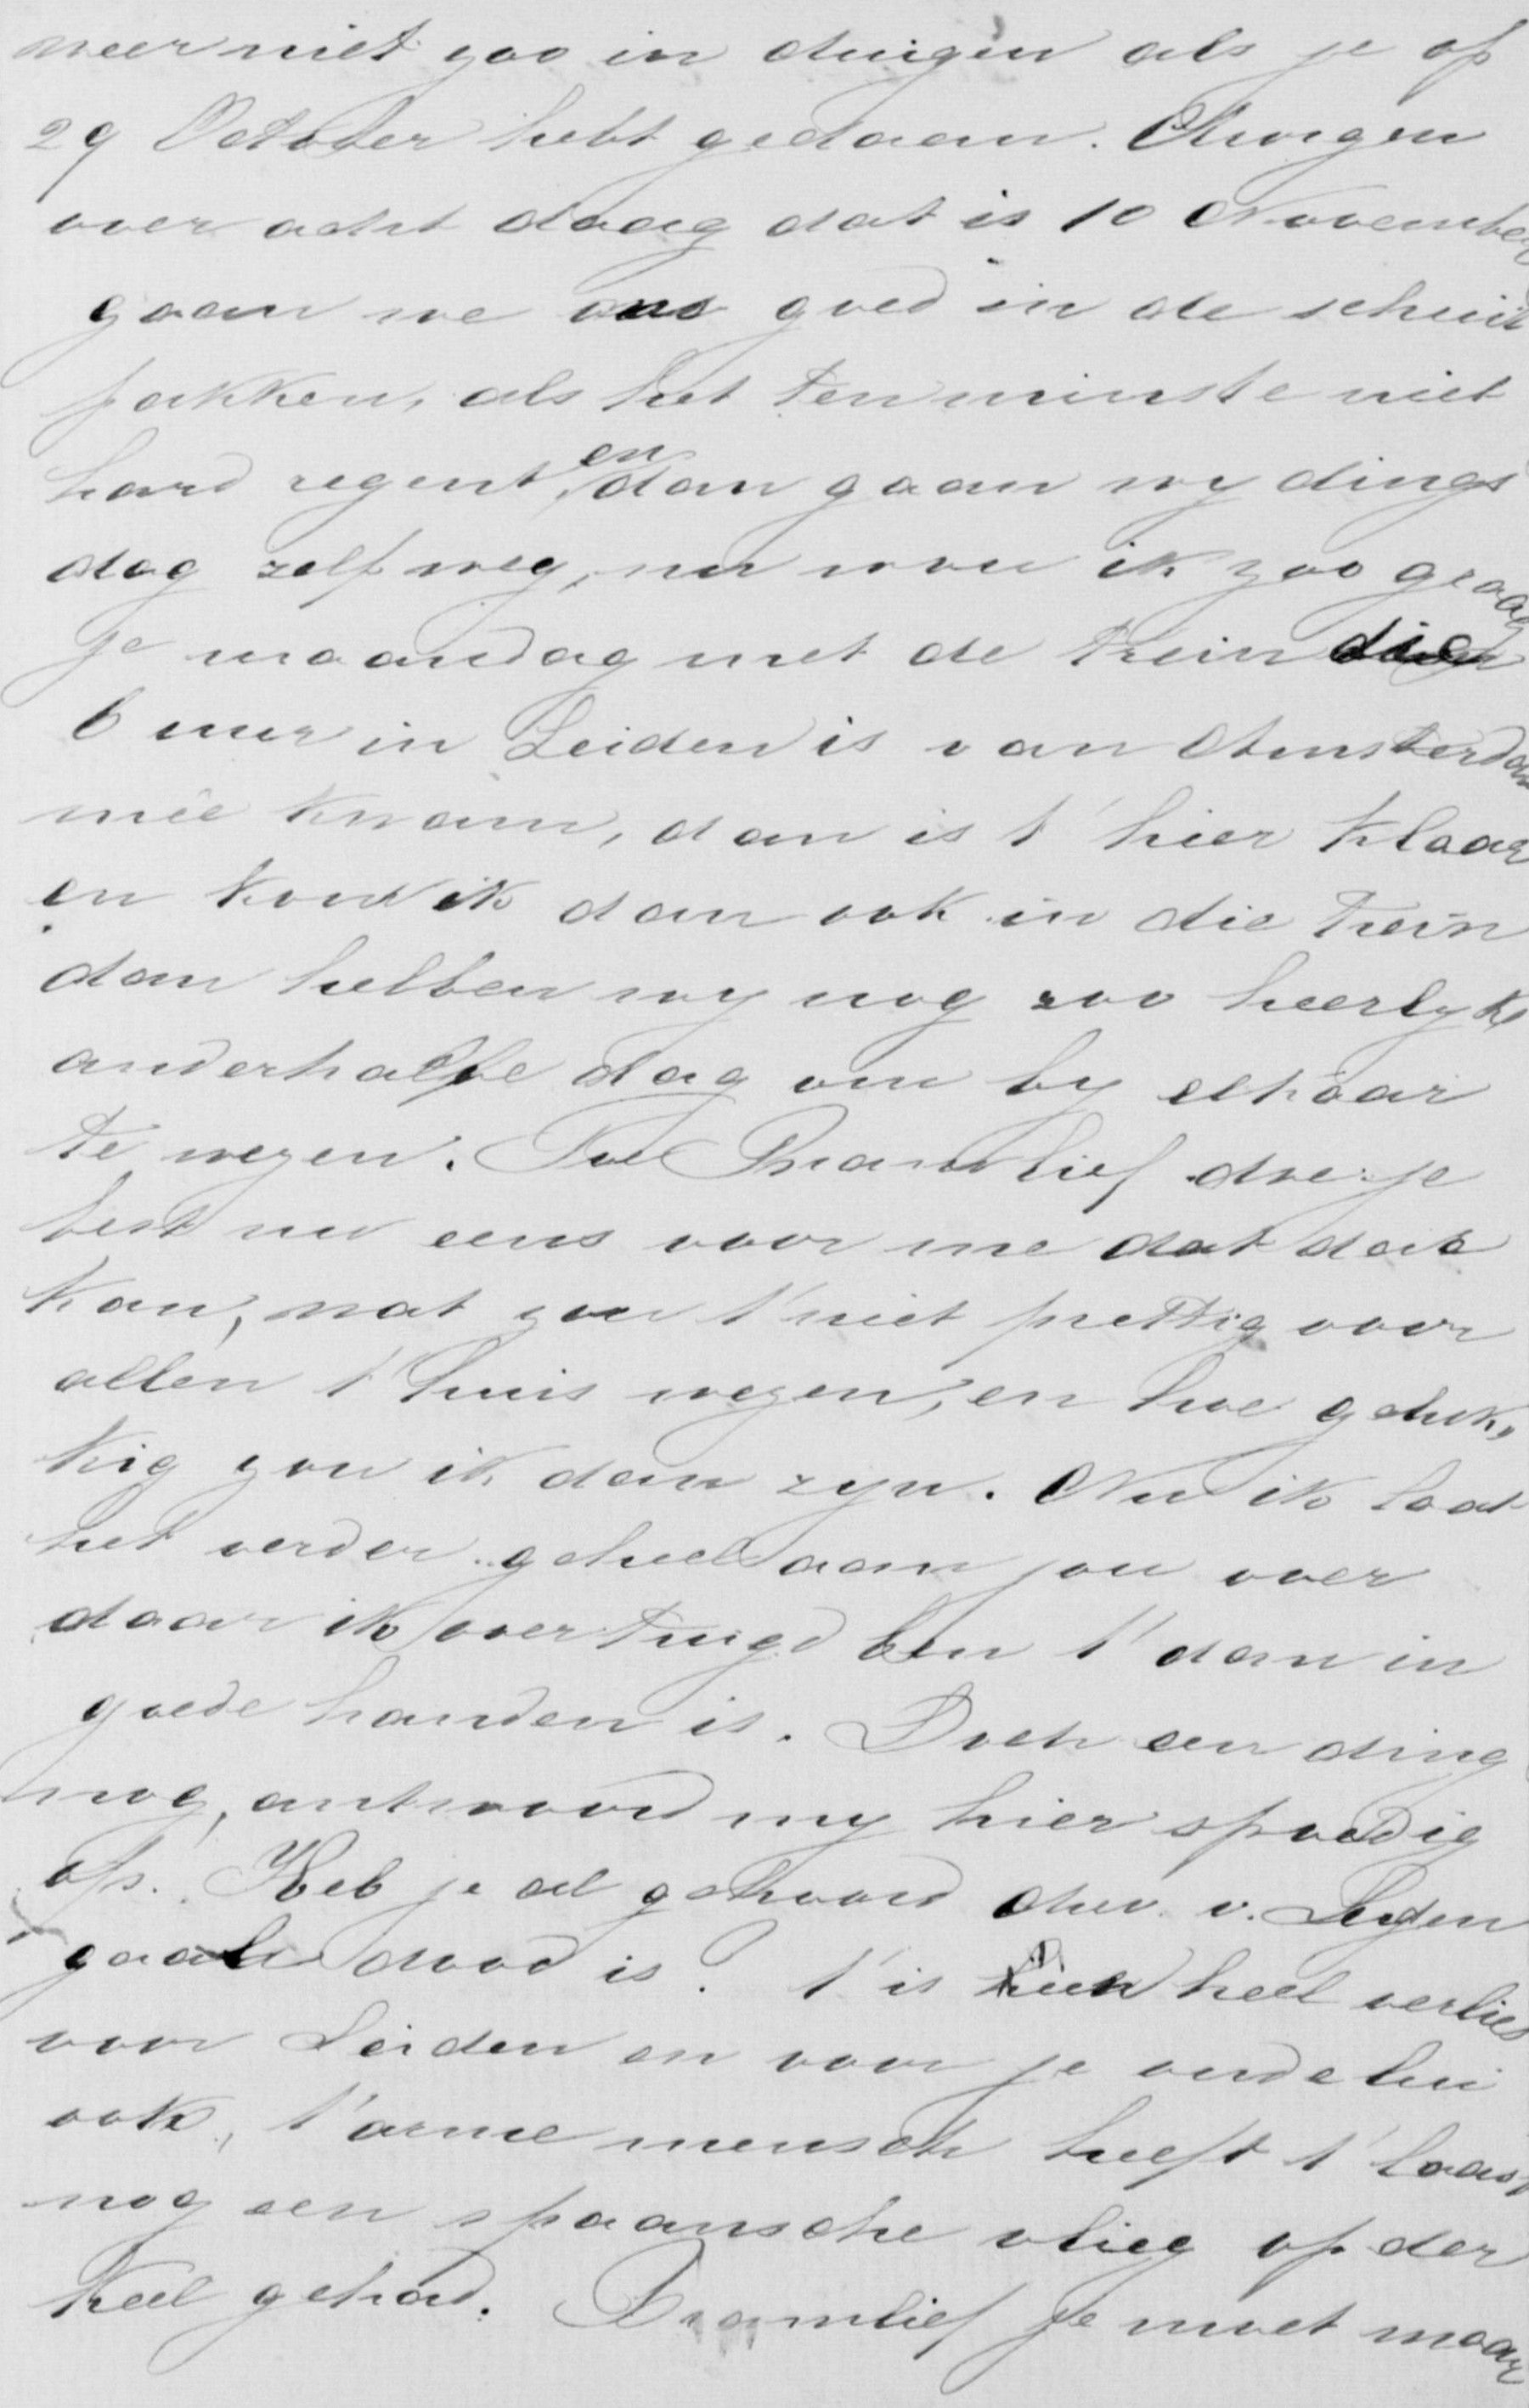 weer niet zoo in duigen als je op
29 October hebt gedaan. Morgen
over acht daag dat is 10 November
gaan we ons goed in de schuit
pakken, als het ten minste niet
hard regent, en dan gaan wy dings
dag zelf weg, nu wou ik zoo graag
je maandag met de trein die
6 uur in Leiden is van Amsterdam
mêe kwam, dan is t' hier klaar
en kon ik dan ook in die trein
dan hebben wy nog zoo heerlyk
anderhalve dag om by elkaar
te wezen. Toe Bram lief doe je
best nu eens voor me dat dat
kan, wat zou t' niet prettig voor
allen t' huis wezen, en hoe geluk,,
kig zou ik dan zyn. Nu ik laat
het verder geheel aan jou over
daar ik overtuigd ben t' dan in
goede handen is. Doch een ding
nog, antwoord my hier spoedig
op. Heb je al gehoord v.
dood is? t' is heel verlies
voor Leiden en voor je oude lui
ook, t' arme mensch heeft t' laast
nog een spaansche vlieg op der
keel gehad. Bramlief je moet maar